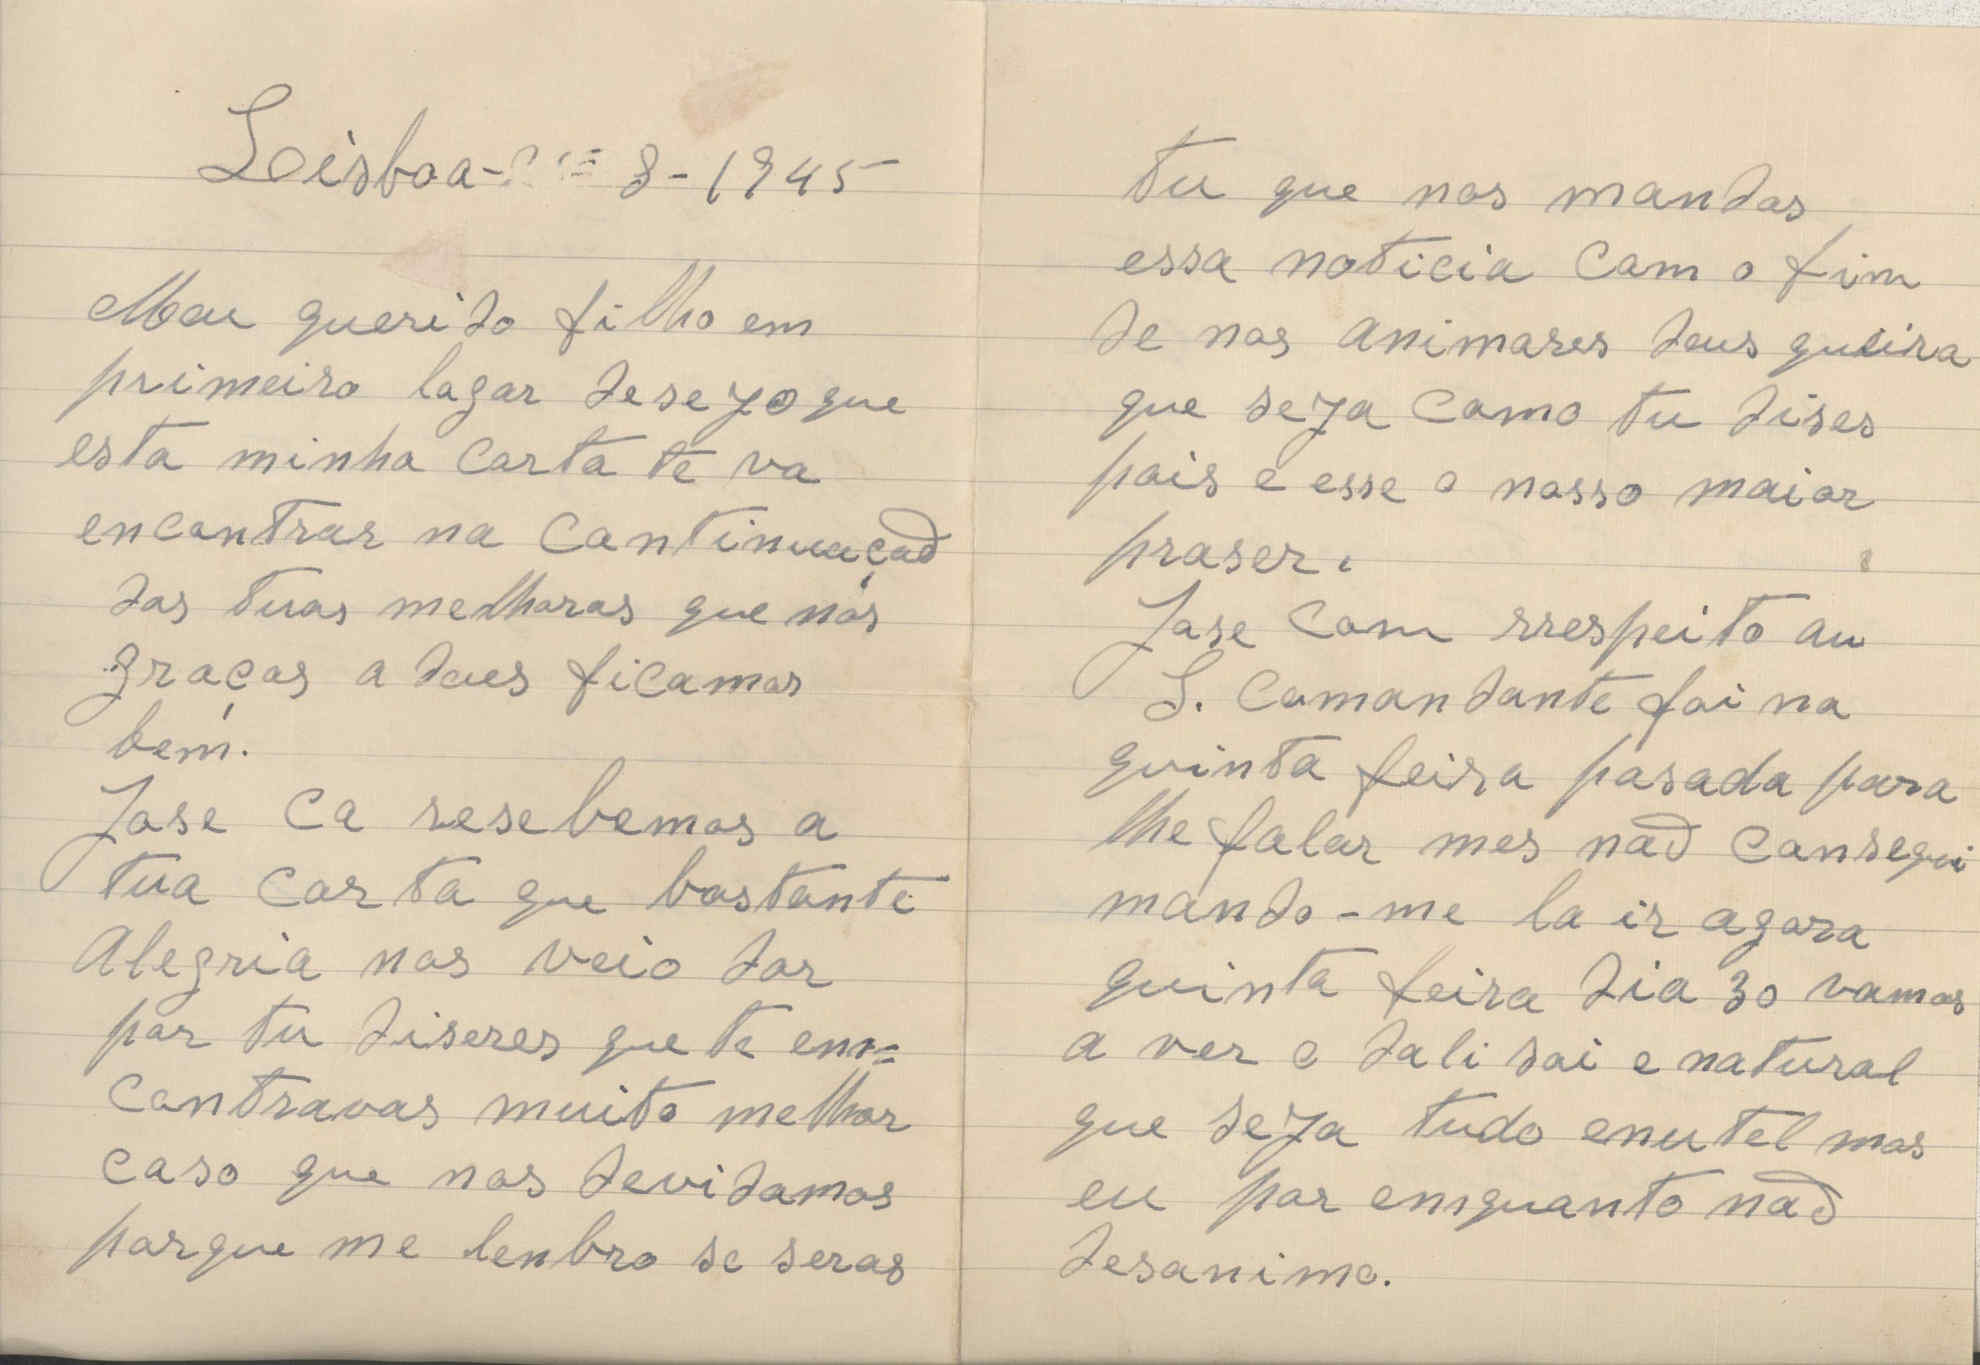 Leisboa- 8-1945
Meu querido filho em
primeiro lugar deseyo que
esta minha carta te va
encontrar na continuaçaõ
das tuas melhoras que nós
graças a deus ficamos
bem.
Jose ca resebemos a
tua carta que bastante
Alegria nos veio dar
por tu diseres que te en=
contravas muito melhor
caso que nos devidamos
porque me lenbro se seras
tu que nos mandas
essa noticia com o fim
de nos animares deus queira
que seja como tu dises
pois e esse o nosso maior
praser.
Jose com rrespeito au
S. Comandante foi na
quinta feira pasada para
lhe falar mes naõ consegui
mando-me la ir agora
quinta feira dia 30 vamos
a ver o dali sai e natural
que seja tudo enutel mas
eu por emquanto naõ
desanimo.